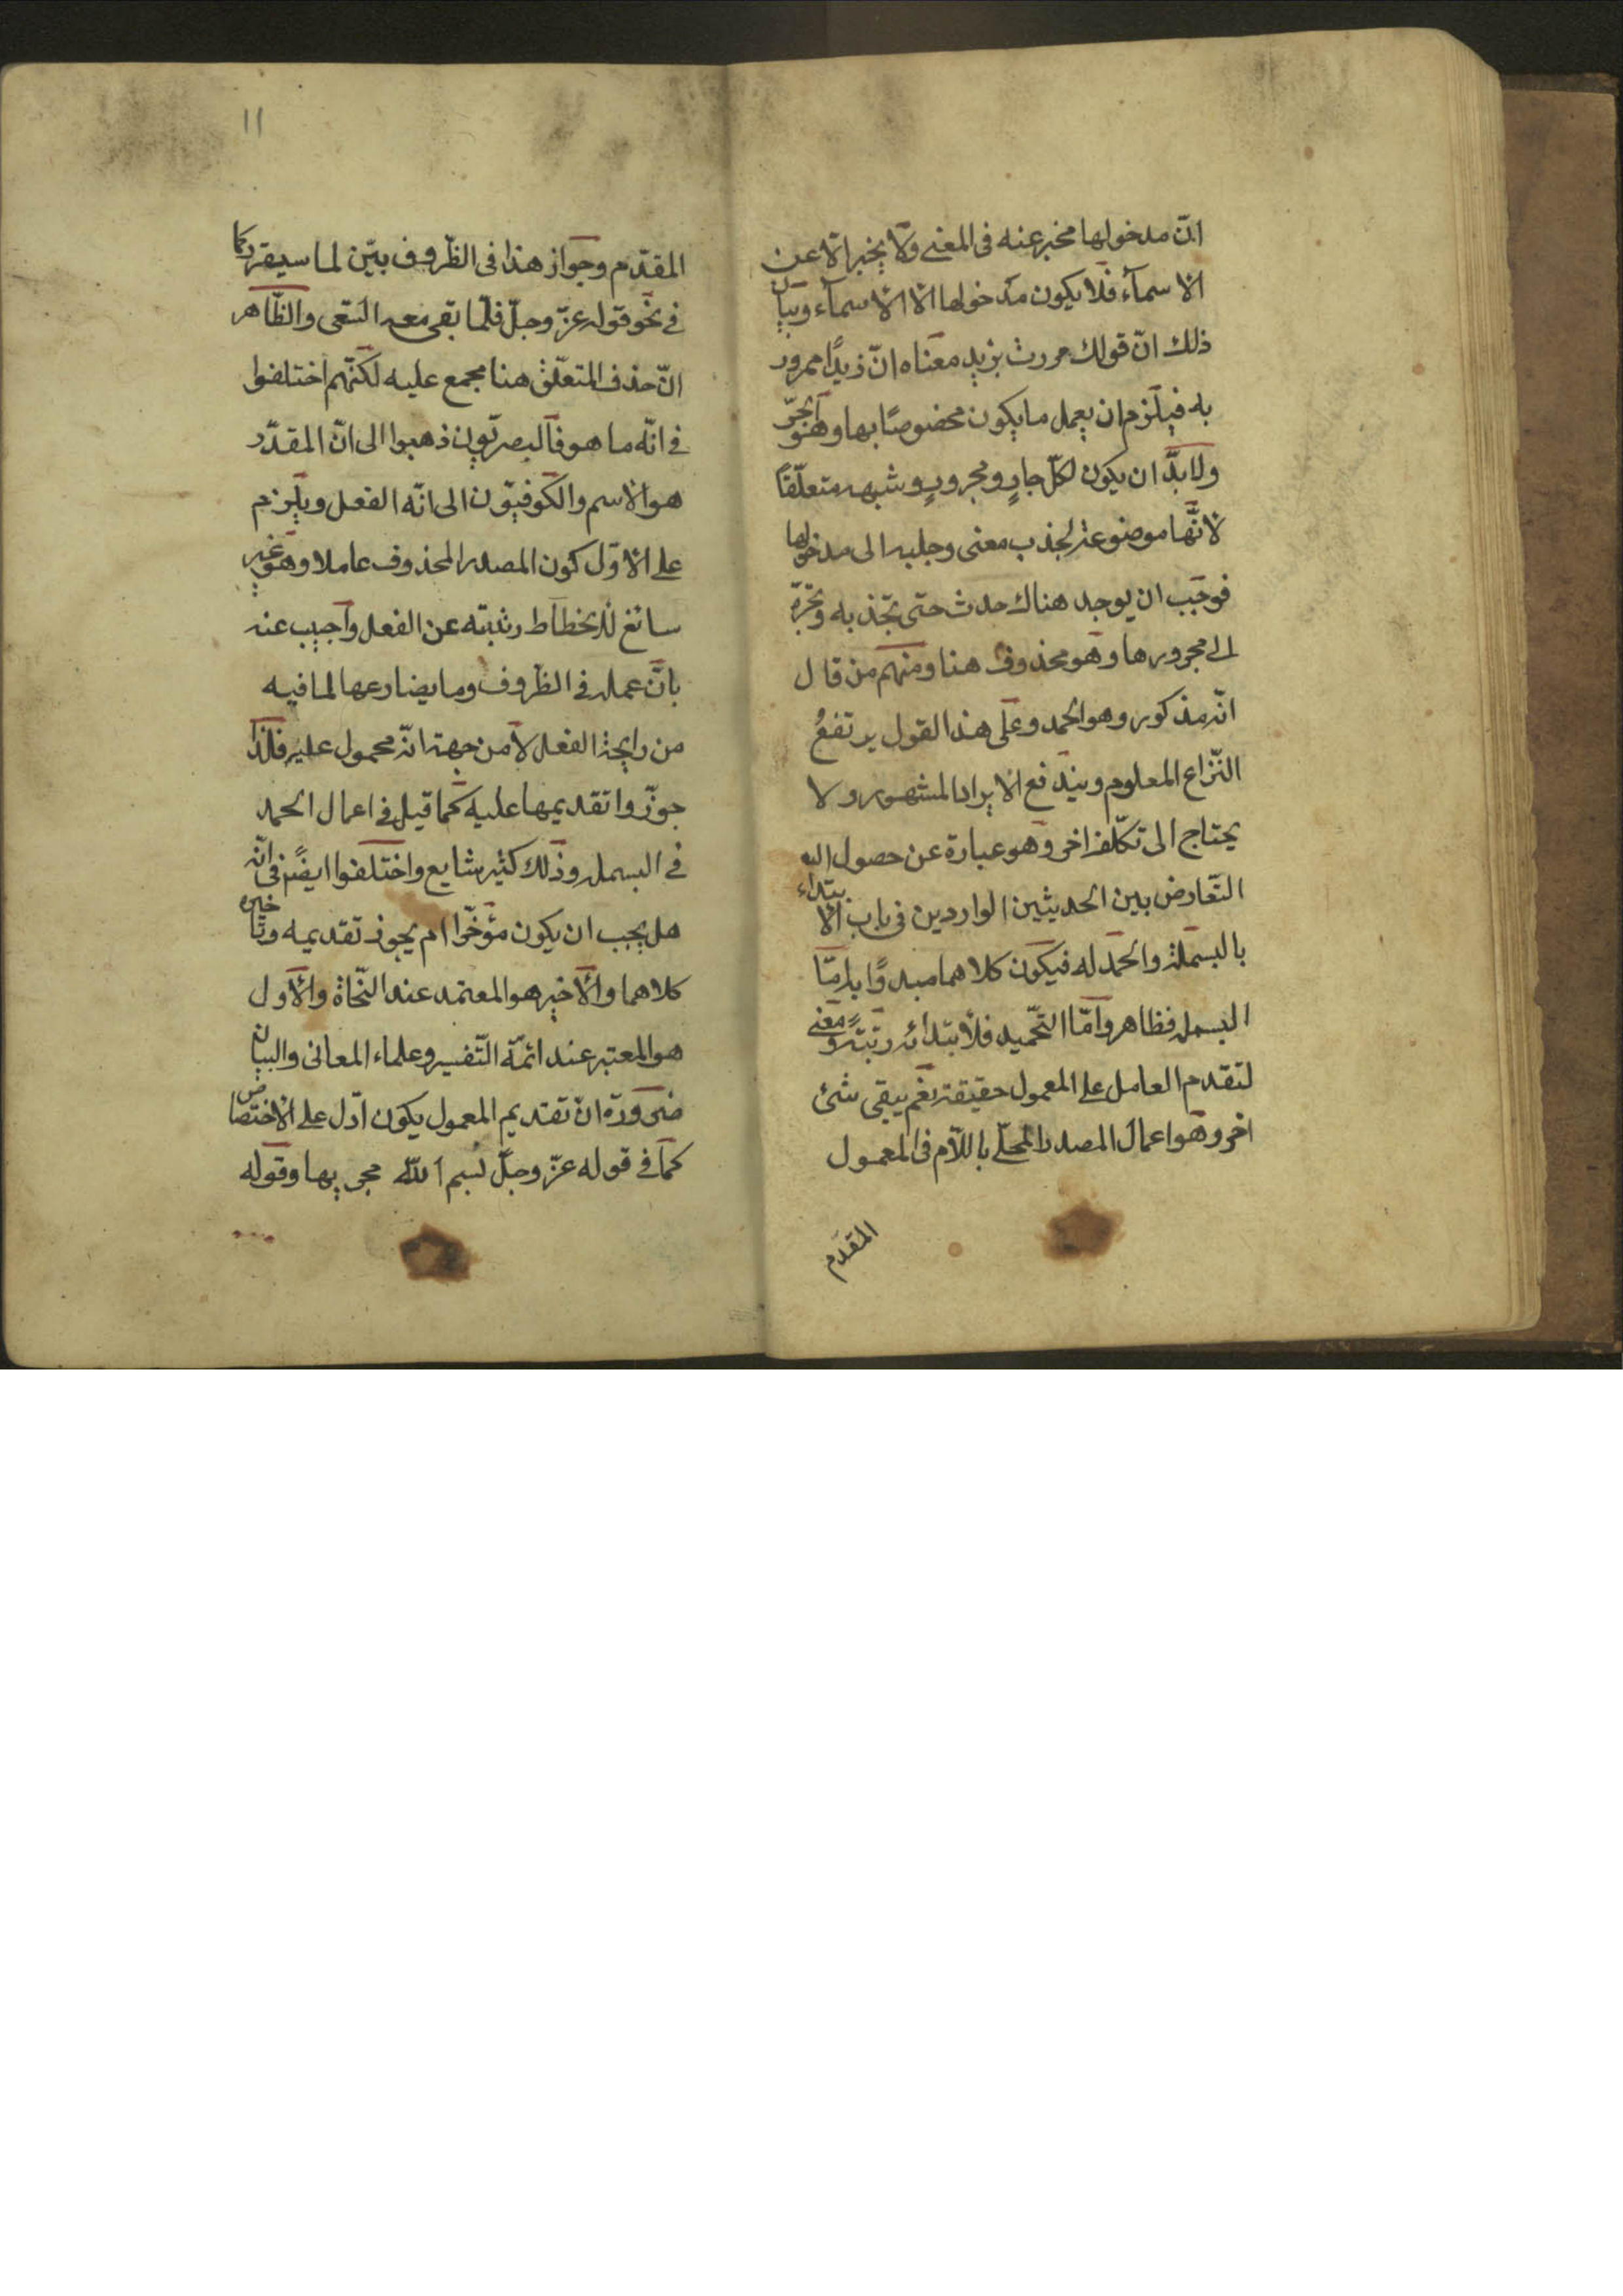 انّ مدخولها مخبر عنه فى المعنى ولا يخبر الّا عن
الاسمآء فلا يكون مدخولها الا الاسمآء وبيان
ذلك انّ قولك مررت بزيد معناه انّ زيدًا ممرور
به فيلزم ان يعمل ما يكون مخصوصًا بها وهو الجرّ
ولا بدّ ان يكون لكلّ جارٍ ومجرورٍ وشبهه متعلّقاً
لانّها موضوعة لجذب معنى وجلبه الى مدخولها
فوجب ان يوجد هناك حدث حتى تجذبه وتجرّه
الى مجرورها وهو محذوف هنا ومنهم من قال
انّه مذكور وهو الحمد وعلى هذا القول يرتفعُ
النّزاع المعلوم ويندفع الايراد المشهور ولا
يحتاج الى تكلّف اخر وهو عبارة عن حصول
التّعارض بين الحديثين الواردين فى باب الابتداء
بالبسملة والحمدله فيكون كلاهما مبدوًا به امّا
البسمله فظاهر وامّا التّحميد فلابتدائه رتبتةً ومعنى
لتقدم العامل على المعمول حقيقة نعم يبقى شئ
اخر وهو اعمال المصدر المحلّى باللّام فى المعمول
المقدّم
١١
المقدّم وجواز هذا فى الظّروف بيّن لما سيقرر كما
فى نحو قوله عزّ وجلّ فلمّا بقى معه السّعى والظّاهر
انّ حذف المتعلّق هنا مجمع عليه لكنّهم اختلفوا
فى انّه ما هو فالبصريّون ذهبوا الى انّ المقدّر
هو الاسم والكوفيّون الى انّه الفعل ويلزم
على الاوّل كون المصدر المحذوف عاملا وهو غير
سائغ لانحطاط رتبته عن الفعل واجيب عنه
بانّ عمله فى الظّروف وما يضارعها لما فيه
من رايحة الفعل لا من جهة انّه محمول عليه فلذا
جوّزوا تقديمها عليه كما قيل فى اعمال الحمد
فى البسمله وذلك كثير شايع واختلفوا ايضًا فى انّه
هل يجب ان يكون مؤخّرا ام يجوز تقديمه وتاخيره
كلاهما والاخير هو المعتمد عند النّحاة والاول
هو المعتبر عند ائمّة التّفسير وعلماء المعانى والبيان
ضرورة انّ تقديم المعمول يكون ادّل على الاختصاص
كما فى قوله عزّ وجلّ بسم اللّه مجريها وقوله